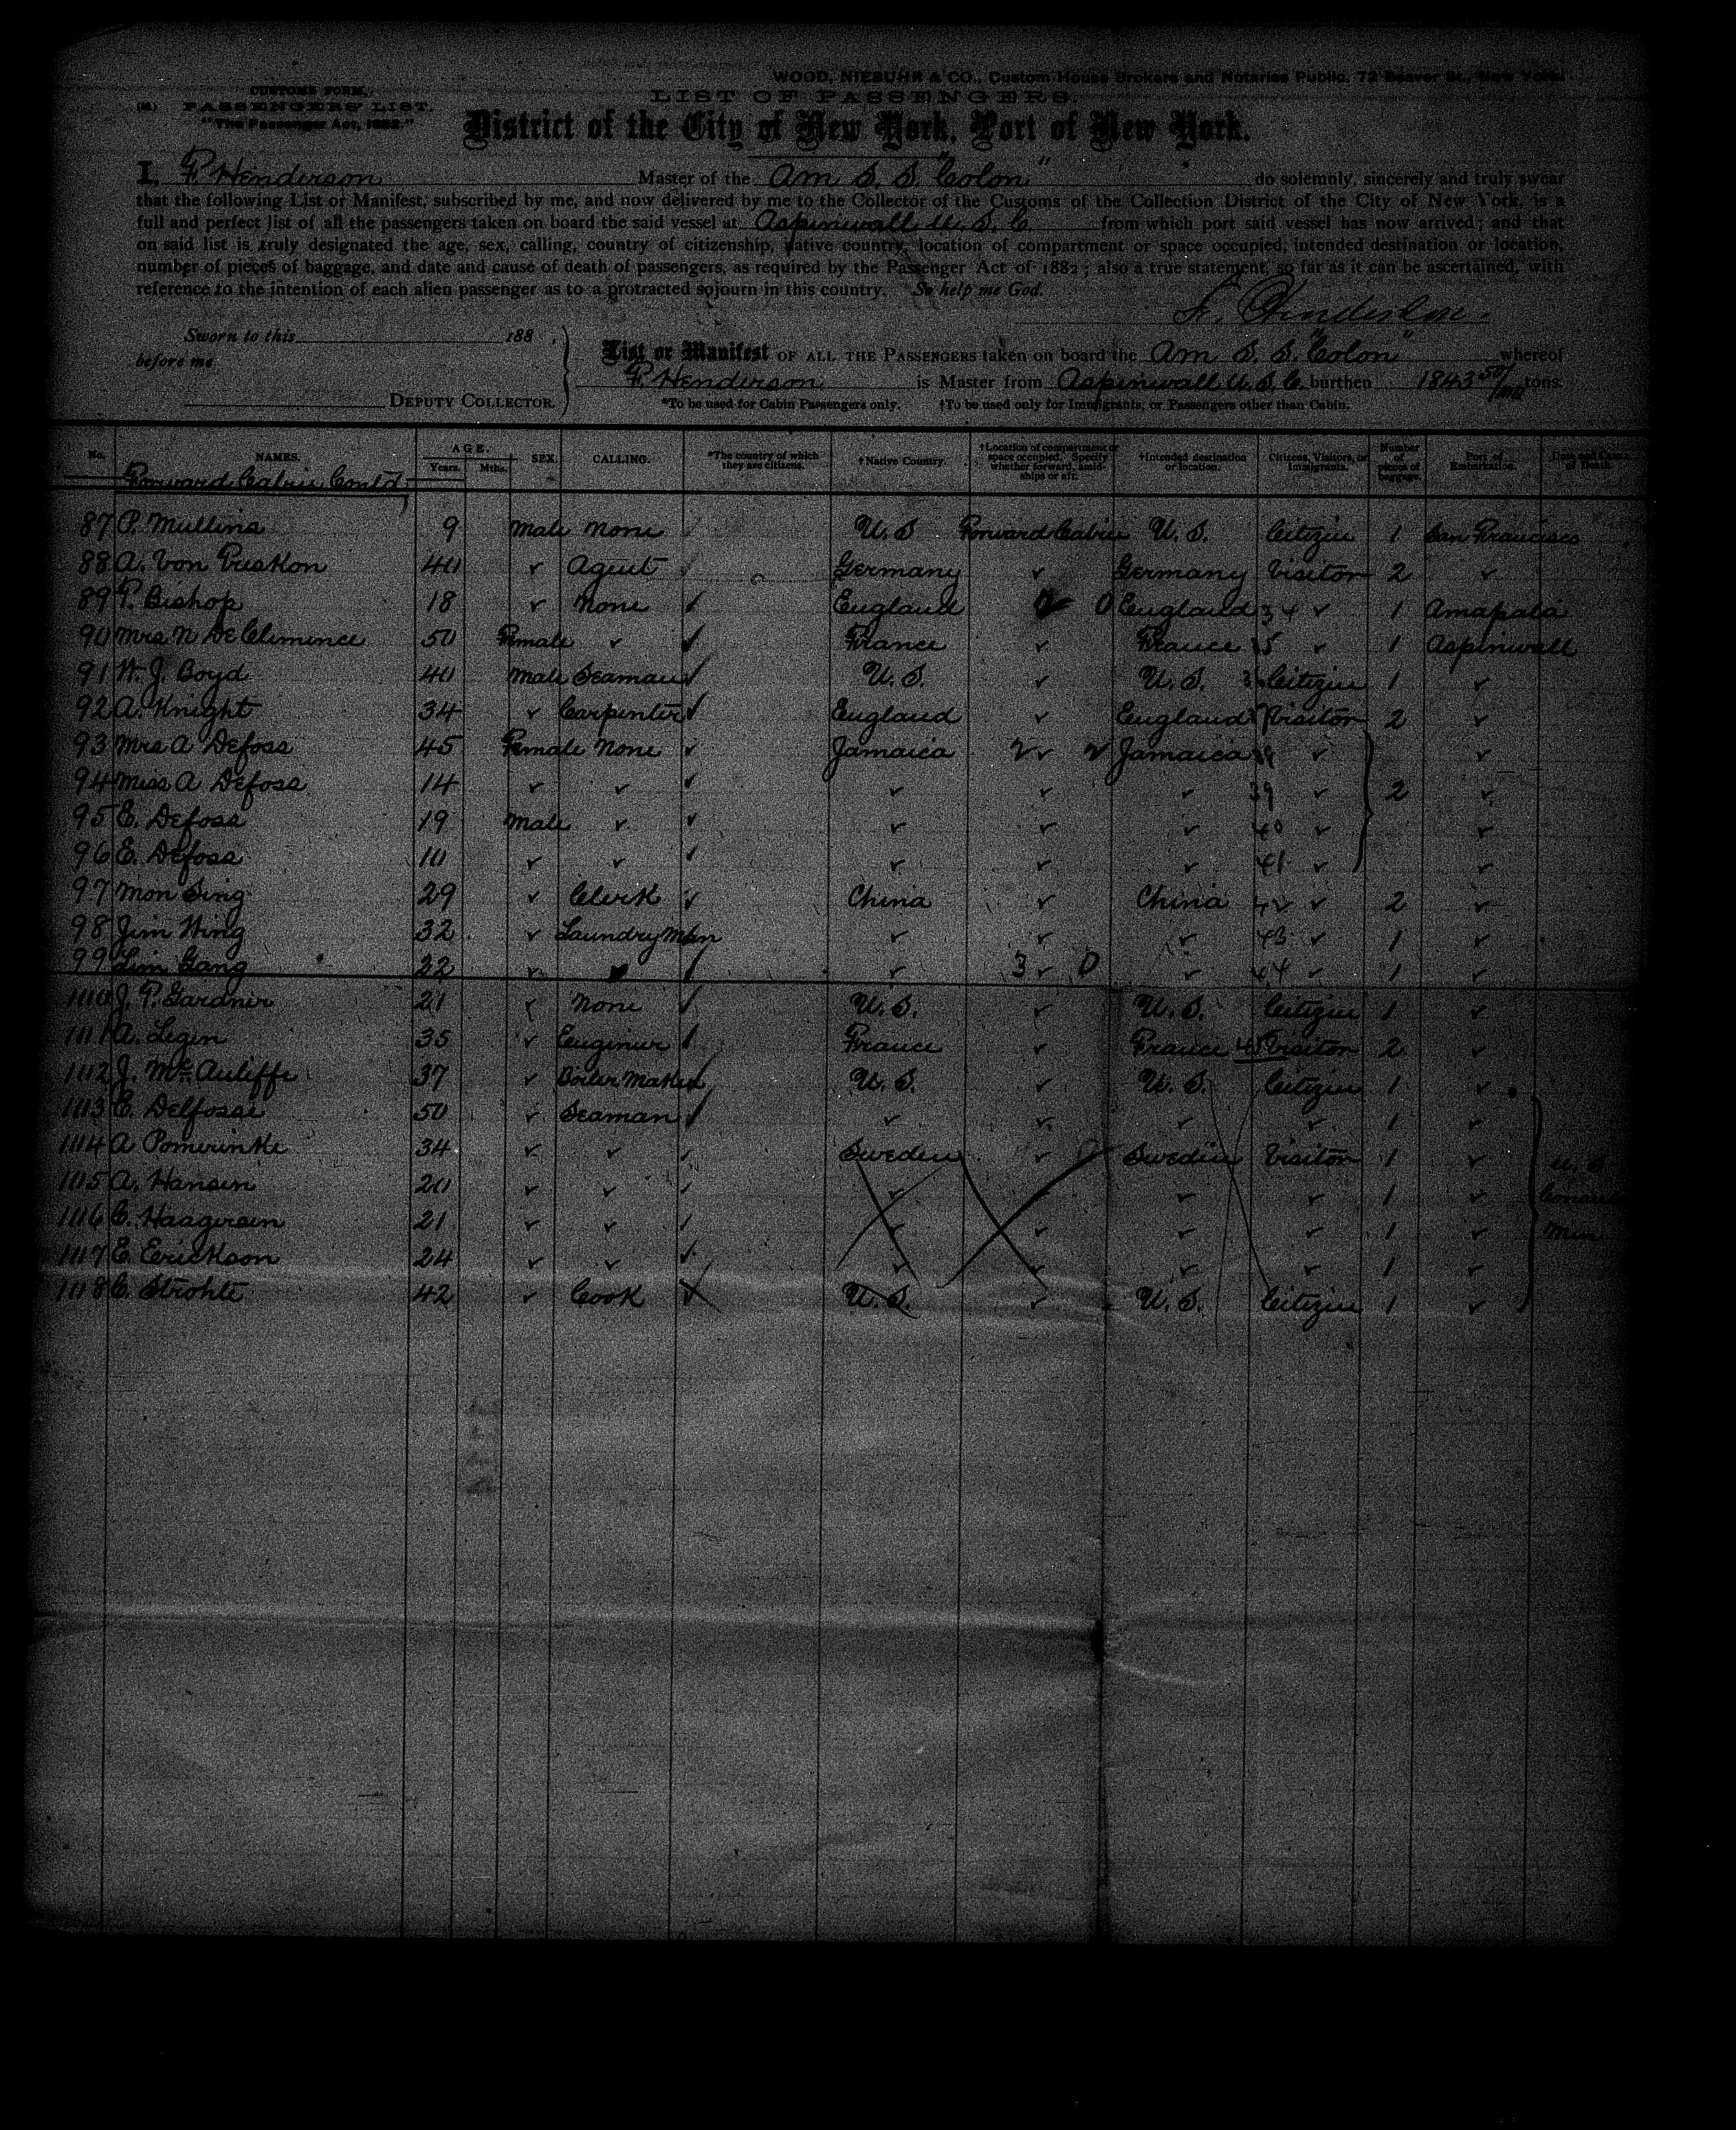 WOOD, NIEBUHR & CO., Custom House Brokers and Notaries Public, 72 Beaver St., New York.
CUSTOMS FORM.
LIST OF PASSENGERS.
PASSENGERS' LIST.
"The Passenger Act, 1882."
District of the City of New York, Port of New York.
I, F. Henderson Master of the Am S. S. "Colon" do solemnly, sincerely and truly swear
that the following List or Manifest, subscribed by me, and now delivered by me to the Collector of the Customs of the Collection District of the City of New York, is a
full and perfect list of all the passengers taken on board the said vessel at Aspinwall U. S. C from which port said vessel has now arrived; and that
on said list is truly designated the age, sex, calling, country of citizenship, native country, location of compartment or space occupied, intended destination or location,
number of pieces of baggage, and date and cause of death of passengers, as required by the Passenger Act of 1882; also a true statement, so far as it can be ascertained, with
reference to the intention of each alien passenger as to a protracted sojourn in this country. So help me God.
F. Henderson.
Sworn to this 188 .
before me
DEPUTY COLLECTOR.
List or Manifest OF ALL THE PASSENGERS taken on board the Am S. S. "Colon" whereof
F. Henderson is Master from Aspinwall U. S. C. burthen 1843 50/100 tons.
*To be used for Cabin Passengers only. †To be used only for Immigrants, or Passengers other than Cabin.
No. NAMES. AGE. Years. Mths. SEX. CALLING. *The country of which they are citizens. †Native Country. †Location of compartment or space occupied. Specify whether forward, amidships or aft. †Intended destination or location. Citizens, Visitors, or Immigrants. Number of pieces of baggage. Port of Embarkation. Date and Cause of Death.
Forward Cabin Cont'd
87 P. Mullins 9 Male None U. S Forward Cabin U. S. Citizen 1 San Francisco
88 A. Von Puskon 40 ✓ Agent Germany ✓ Germany Visitor 2 ✓
89 P. Bishop 18 ✓ None ✓ England 0 England 34 ✓ 1 Amapala
90 Mrs N DeClimence 50 Female ✓ ✓ France ✓ France 35 ✓ 1 Aspinwall
91 W. J. Boyd 40 Male Seaman ✓ U. S. ✓ U. S. Citizen 1 ✓
92 A. Knight 34 ✓ Carpenter ✓ England ✓ England Visitor 2 ✓
93 Mrs A Defoss 45 Female None ✓ Jamaica ✓ Jamaica ✓ ✓
94 Miss A Defoss 14 ✓ ✓ ✓ ✓ ✓ ✓ 39 ✓ 2 ✓
95 E. Defoss 19 Male ✓ ✓ ✓ ✓ ✓ 40 ✓ ✓
96 E. Defoss 10 ✓ ✓ ✓ ✓ ✓ ✓ 41 ✓ ✓
97 Mon Sing 29 ✓ Clerk ✓ China ✓ China 42 ✓ 2 ✓
98 Jim Wing 32 ✓ Laundryman ✓ ✓ ✓ 43 ✓ 1 ✓
99 Lim Gang 22 ✓ ✓ ✓ 3 ✓ 0 ✓ 44 ✓ 1 ✓
100 J. P. Gardner 21 ✓ None ✓ U. S. ✓ U. S. Citizen 1 ✓
101 A. Legen 35 ✓ Enginier ✓ France ✓ France 45 Visitor 2 ✓
102 J. McAuliffe 37 ✓ Boiler Maker ✓ U. S. ✓ U. S. Citizen 1 ✓
103 E. Delfosse 50 ✓ Seaman ✓ ✓ ✓ ✓ ✓ 1 ✓
104 A Pomerinke 34 ✓ ✓ ✓ Sweden ✓ Sweden Visitor 1 ✓ U. S
105 A. Hansen 20 ✓ ✓ ✓ ✓ ✓ ✓ 1 ✓
106 C. Haagersen 21 ✓ ✓ ✓ ✓ ✓ ✓ ✓ 1 ✓ Men
107 E. Erickson 24 ✓ ✓ ✓ ✓ ✓ ✓ ✓ 1 ✓
108 C. Strohte 42 ✓ Cook ✓ U. S. ✓ U. S. Citizen 1 ✓